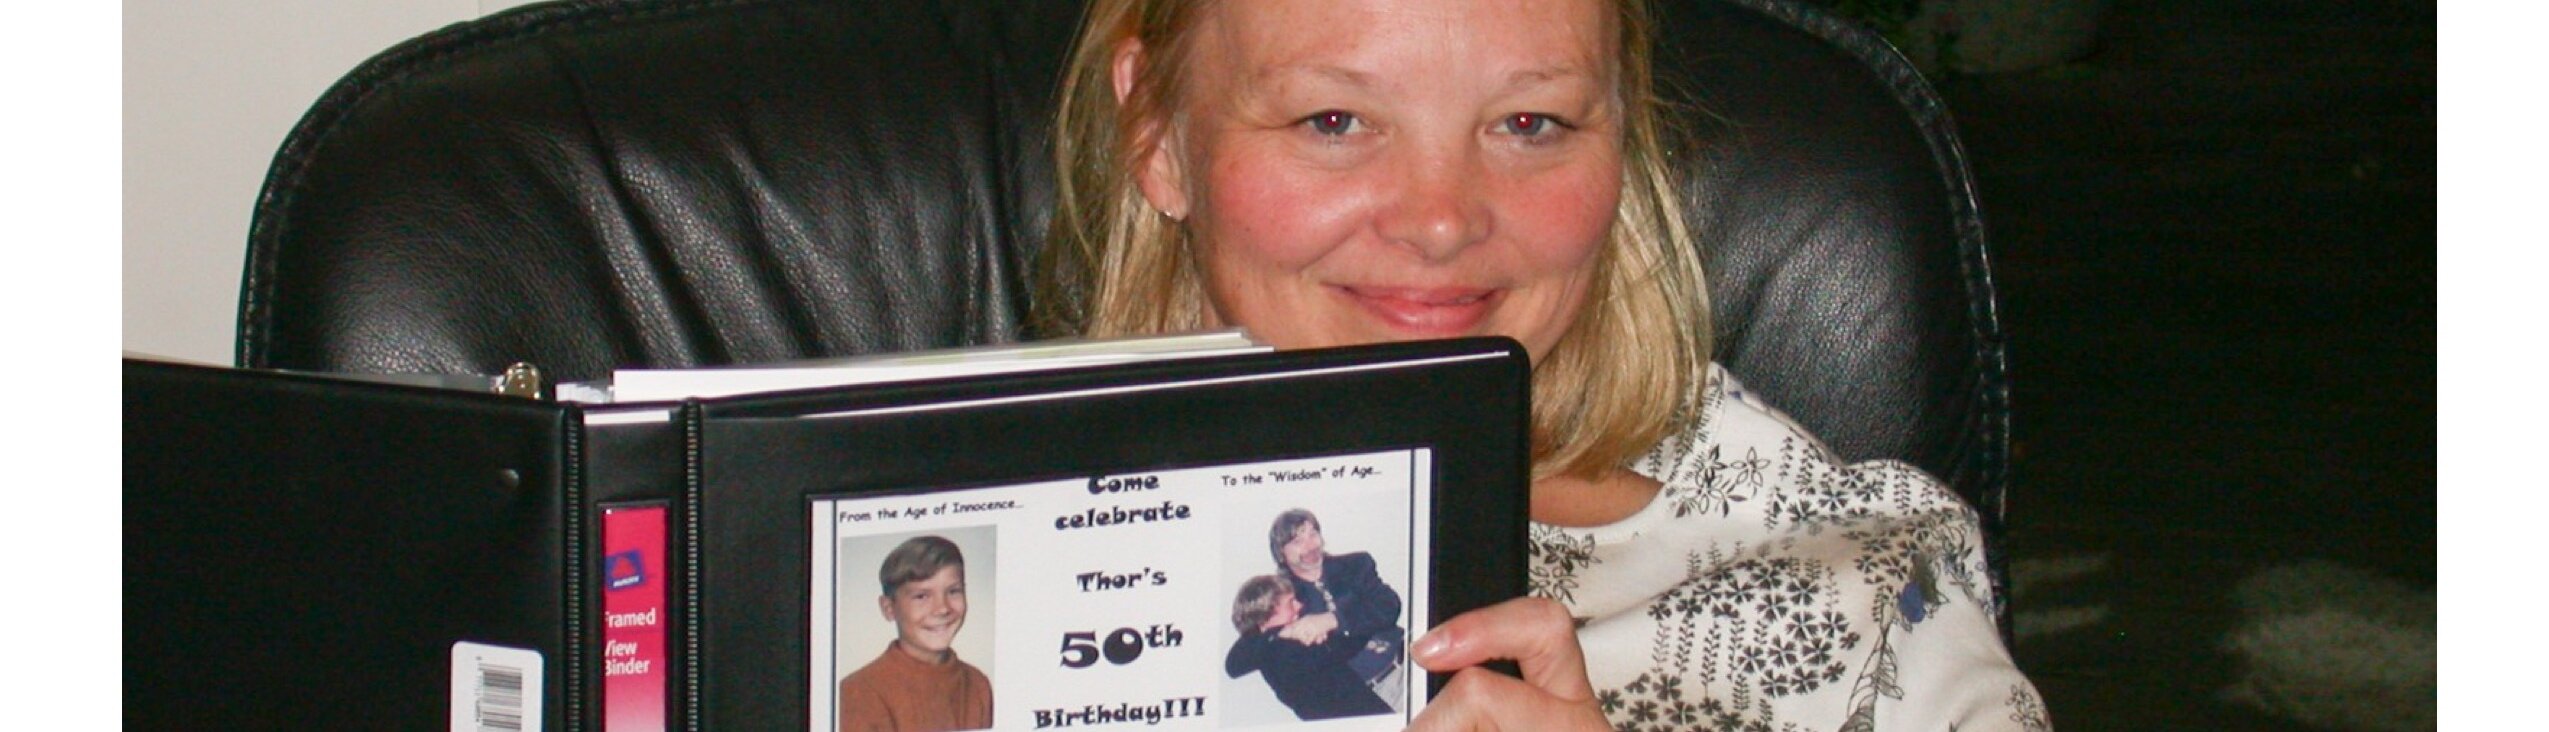 From the Age of Innocence...
Come
celebrate
Thor's
50th
Birthday!!!
To the "Wisdom" of Age...
AVERY
Framed
View
Binder